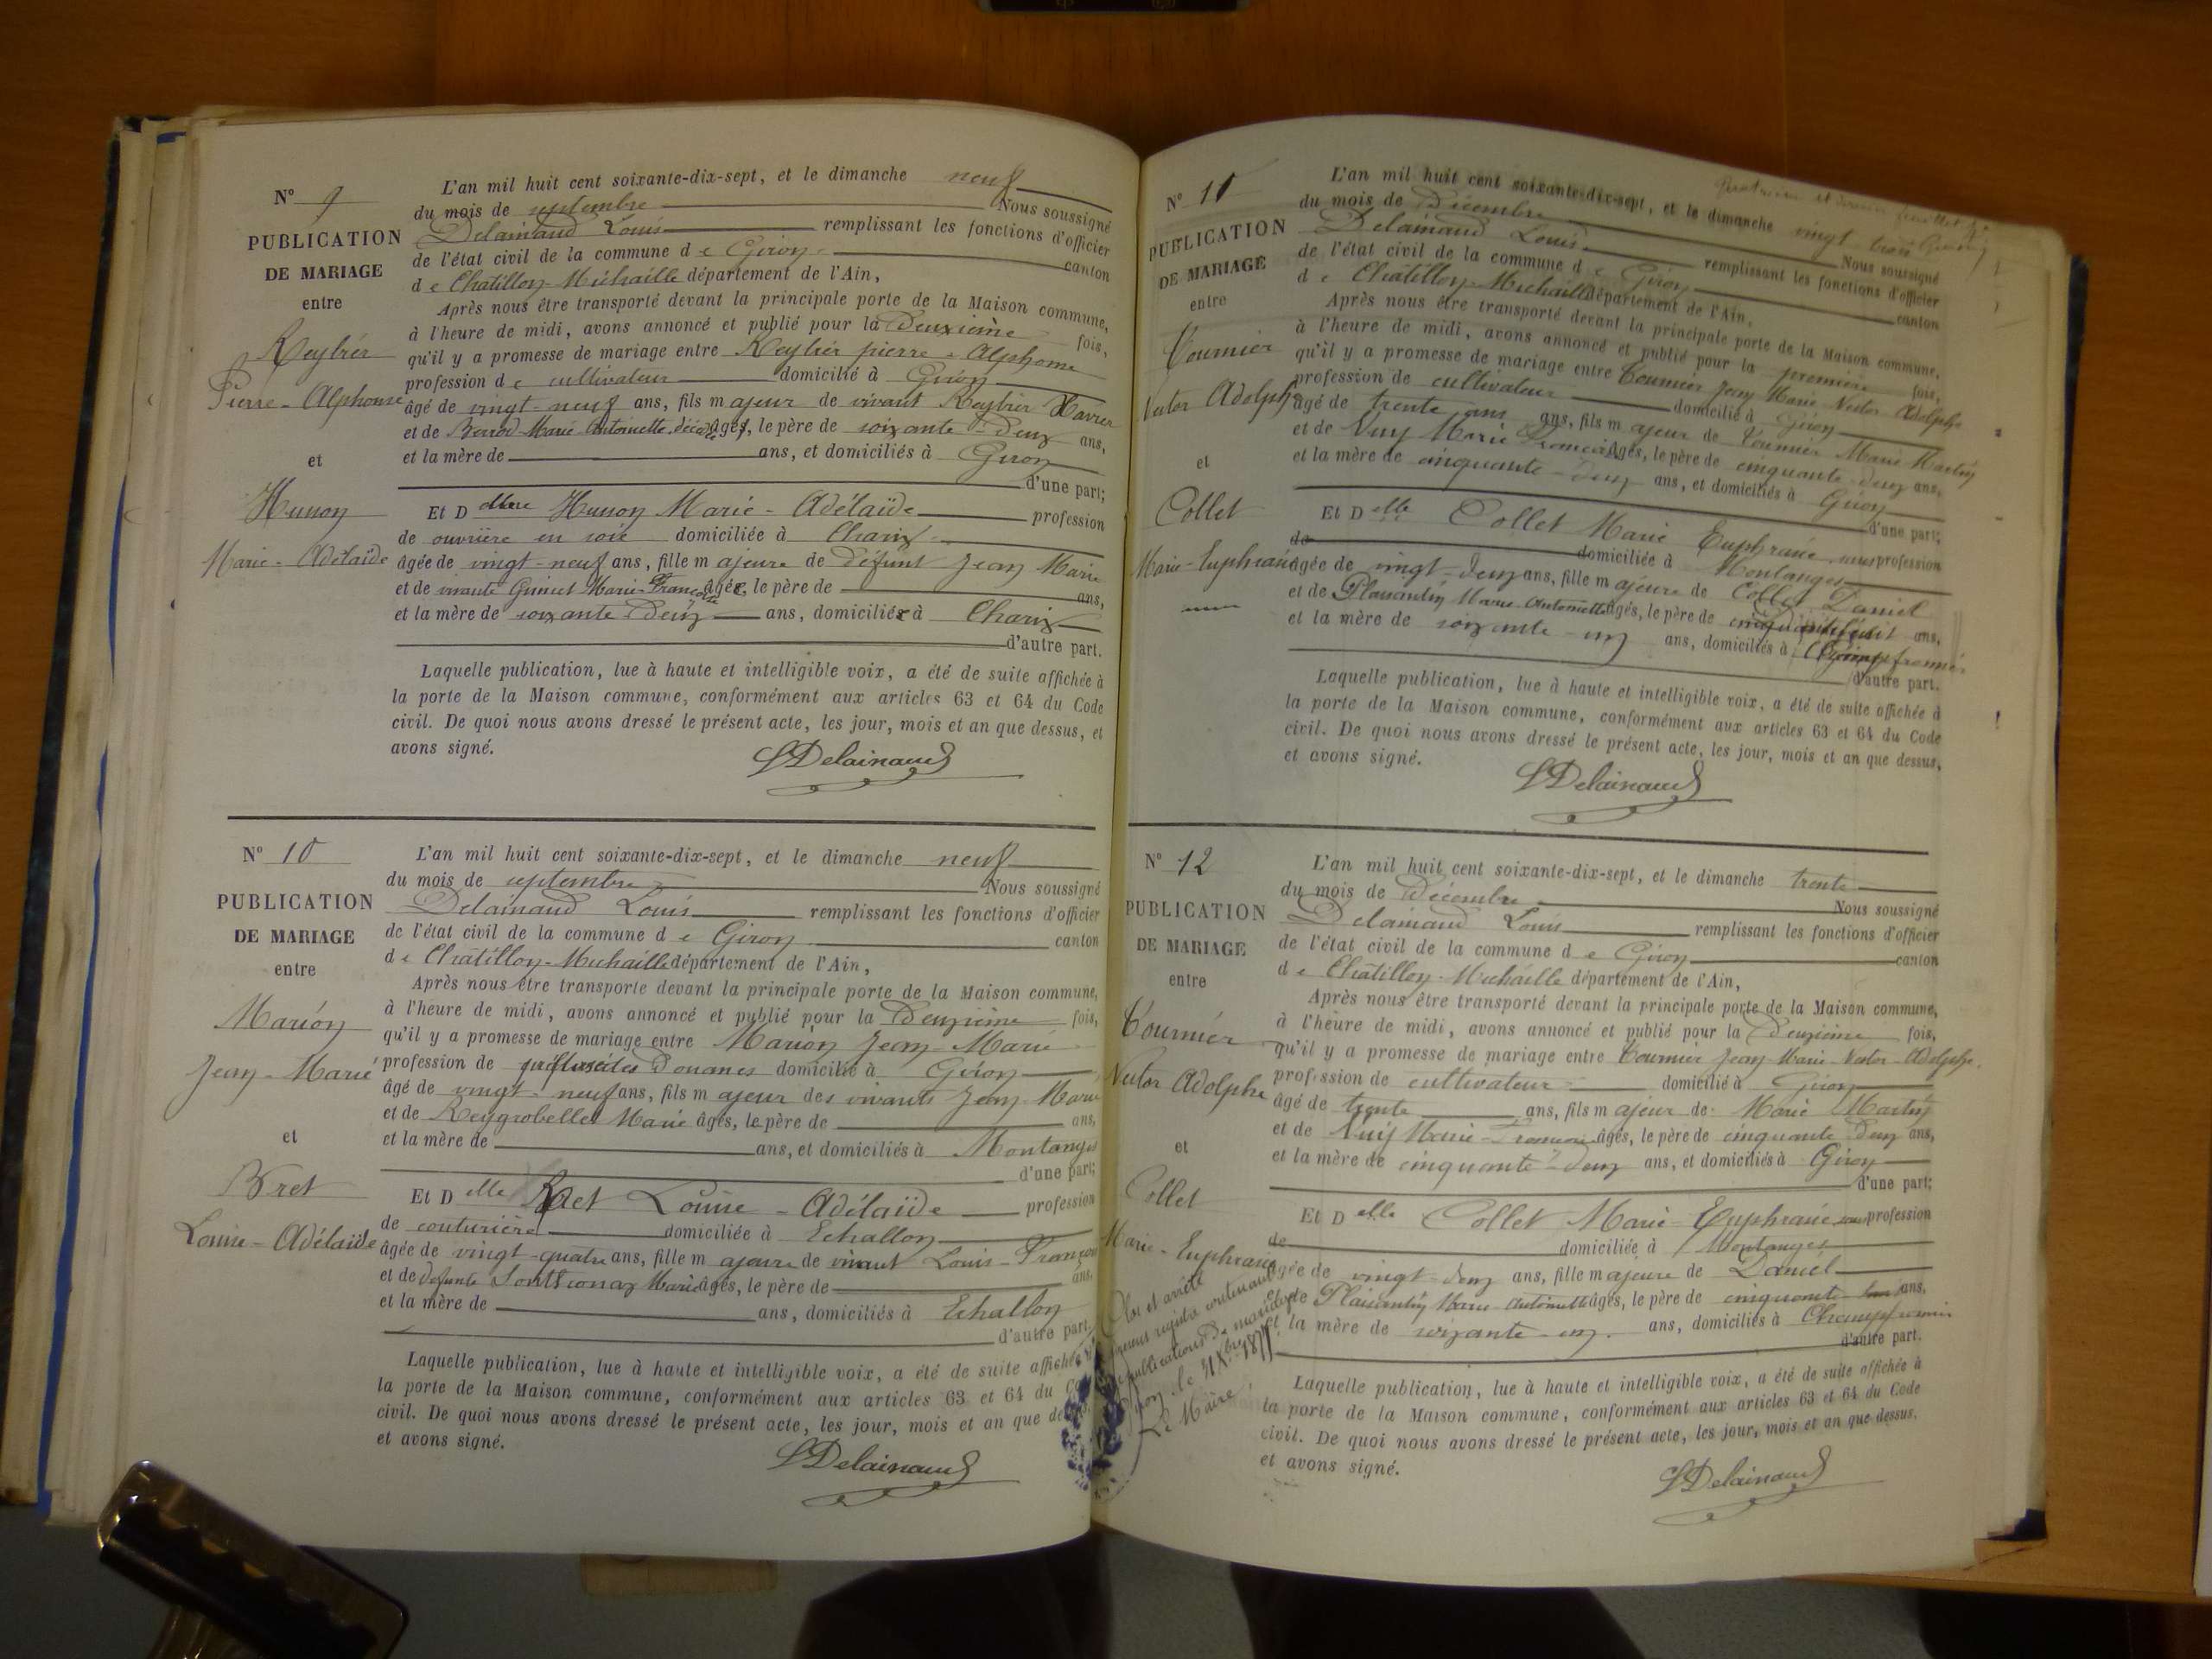 N° 9
PUBLICATION
DE MARIAGE
entre
Reybier
Pierre-Alphonse
et
Hunon
Marie-Adélaïde
L'an mil huit cent soixante-dix-sept, et le dimanche neuf
du mois de septembre Nous soussigné
Delainaud Louis remplissant les fonctions d'officier
de l'état civil de la commune de Giron canton
de Chatillon-Michaille département de l'Ain,
Après nous être transporté devant la principale porte de la Maison commune,
à l'heure de midi, avons annoncé et publié pour la Deuxième fois,
qu'il y a promesse de mariage entre Reybier pierre-Alphonse
profession de cultivateur domicilié à Giron
âgé de vingt-neuf ans, fils majeur de vivant Reybier Xavier
et de Berrod Marie Antoinette, décédée âgés, le père de soixante-deux ans,
et la mère de ans, et domiciliés à Giron
d'une part;
Et D elle Hunon Marie-Adélaïde profession
de ouvrière en soie domiciliée à Charix
âgée de vingt-neuf ans, fille majeure de défunt Jean Marie
et de vivante Guinet Marie-Françoise âgée, le père de ans,
et la mère de soixante Deux ans, domiciliée à Charix
d'autre part.
Laquelle publication, lue à haute et intelligible voix, a été de suite affichée à
la porte de la Maison commune, conformément aux articles 63 et 64 du Code
civil. De quoi nous avons dressé le présent acte, les jour, mois et an que dessus, et
avons signé.
LDelainaud
N° 10
PUBLICATION
DE MARIAGE
entre
Marion
Jean-Marie
et
Bret
Louise-Adélaïde
L'an mil huit cent soixante-dix-sept, et le dimanche neuf
du mois de septembre Nous soussigné
Delainaud Louis remplissant les fonctions d'officier
de l'état civil de la commune de Giron canton
de Chatillon-Michaille département de l'Ain,
Après nous être transporté devant la principale porte de la Maison commune,
à l'heure de midi, avons annoncé et publié pour la Deuxième fois,
qu'il y a promesse de mariage entre Marion Jean-Marie
profession de Douanes domicilié à Giron
âgé de vingt-neuf ans, fils majeur des vivants Jean-Marie
et de Reygrobellet Marie âgés, le père de ans,
et la mère de ans, et domiciliés à Montanges
d'une part;
Et D elle Bret Louise-Adélaïde profession
de couturière domiciliée à Echallon
âgée de vingt-quatre ans, fille majeure de vivant Louis-François
et de defunte Sonthonnaz Marie âgés, le père de ans,
et la mère de ans, domiciliés à Echallon
d'autre part.
Laquelle publication, lue à haute et intelligible voix, a été de suite affichée à
la porte de la Maison commune, conformément aux articles 63 et 64 du Code
civil. De quoi nous avons dressé le présent acte, les jour, mois et an que dessus,
et avons signé.
LDelainaud
Quatrième et dernier feuillet
N° 11
PUBLICATION
DE MARIAGE
entre
Tournier
Victor Adolphe
et
Collet
Marie-Euphrasie
L'an mil huit cent soixante-dix-sept, et le dimanche vingt-trois
du mois de Décembre Nous soussigné
Delainaud Louis remplissant les fonctions d'officier
de l'état civil de la commune de Giron canton
de Chatillon-Michaille département de l'Ain,
Après nous être transporté devant la principale porte de la Maison commune,
à l'heure de midi, avons annoncé et publié pour la première fois,
qu'il y a promesse de mariage entre Tournier Jean Marie Victor Adolphe
profession de cultivateur domicilié à Giron
âgé de trente ans ans, fils majeur de Tournier Marie Martin
et de Nuy Marie Françoise âgés, le père de cinquante-deux ans,
et la mère de cinquante-deux ans, et domiciliés à Giron
d'une part;
Et D elle Collet Marie Euphrasie sans profession
de domiciliée à Montanges
âgée de vingt-deux ans, fille majeure de Collet Daniel
et de Plaisantin Marie-Antoinette âgés, le père de ans,
et la mère de soixante-un ans, domiciliés à Champfromier
d'autre part.
Laquelle publication, lue à haute et intelligible voix, a été de suite affichée à
la porte de la Maison commune, conformément aux articles 63 et 64 du Code
civil. De quoi nous avons dressé le présent acte, les jour, mois et an que dessus,
et avons signé.
LDelainaud
N° 12
PUBLICATION
DE MARIAGE
entre
Tournier
Victor Adolphe
et
Collet
Marie-Euphrasie
L'an mil huit cent soixante-dix-sept, et le dimanche trente
du mois de Décembre Nous soussigné
Delainaud Louis remplissant les fonctions d'officier
de l'état civil de la commune de Giron canton
de Chatillon-Michaille département de l'Ain,
Après nous être transporté devant la principale porte de la Maison commune,
à l'heure de midi, avons annoncé et publié pour la Deuxième fois,
qu'il y a promesse de mariage entre Tournier Jean-Marie-Victor-Adolphe,
profession de cultivateur domicilié à Giron
âgé de trente ans, fils majeur de Marie Martin
et de Nuy Marie-Françoise âgés, le père de cinquante deux ans,
et la mère de cinquante-deux ans, et domiciliés à Giron
d'une part;
Et D elle Collet Marie-Euphrasie sans profession
de domiciliée à Montanges
âgée de vingt-deux ans, fille majeure de Daniel
et de Plaisantin Marie-Antoinette âgés, le père de cinquante ans,
et la mère de soixante-un ans, domiciliés à Champfromier
d'autre part.
Laquelle publication, lue à haute et intelligible voix, a été de suite affichée à
la porte de la Maison commune, conformément aux articles 63 et 64 du Code
civil. De quoi nous avons dressé le présent acte, les jour, mois et an que dessus.
et avons signé.
LDelainaud
Clos et arrêté
registre contenant
publications de mariage
Giron, le 31 Xbre 1877.
Le Maire